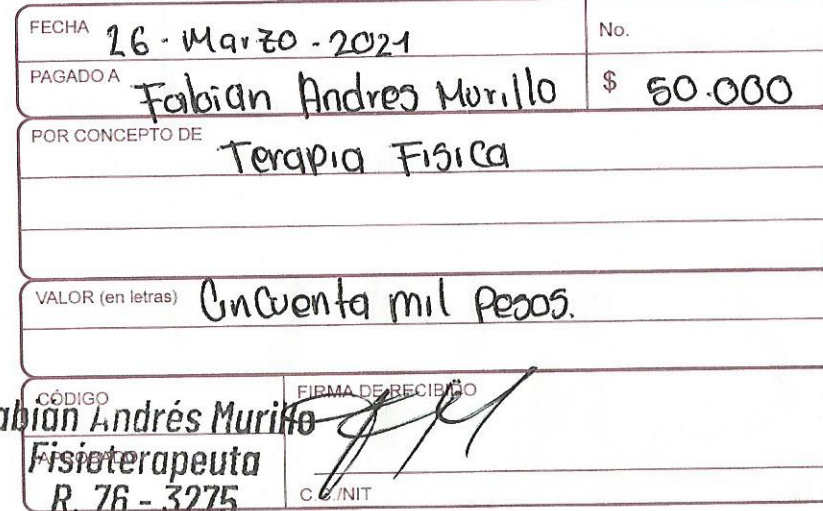 FECHA 26 - Marzo - 2021 No.
PAGADO A Fabian Andres Murillo $ 50.000
POR CONCEPTO DE Terapia Fisica
VALOR (en letras) Cincuenta mil pesos.
CÓDIGO FIRMA DE RECIBIDO
abián Andrés Murillo
APROBADO
Fisioterapeuta
R. 76 - 3275 C.C./NIT